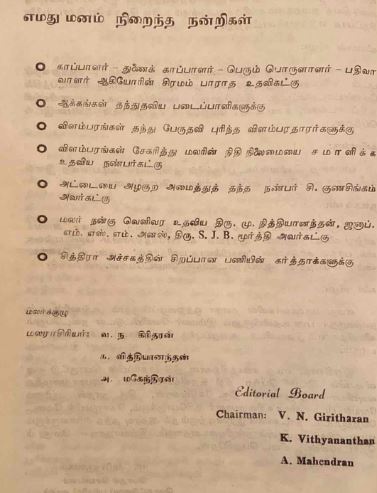 எமது மனம் நிறைந்த நன்றிகள்
காப்பாளர் – துணைக் காப்பாளர் – பெரும் பொருளாளர் – பதிவா
வாளர் ஆகியோரின் சிரமம் பாராத உதவிகட்கு
ஆக்கங்கள் தந்துதவிய படைப்பாளிகளுக்கு
விளம்பரங்கள் தந்து பேருதவி புரிந்த விளம்பரதாரர்களுக்கு
விளம்பரங்கள் சேகரித்து மலரின் நிதி நிலைமையை ச ம ா ளி க் க
உதவிய நண்பர்கட்கு
அட்டையை அழகுற அமைத்துத் தந்த நண்பர் சி. குணசிங்கம்
அவர்கட்கு
மலர் நன்கு வெளிவர உதவிய திரு. மு. நித்தியானந்தன், ஜனாப்.
எம். எஸ். எம். அனஸ், திரு. S. J. B. மூர்த்தி அவர்கட்கு
சித்திரா அச்சகத்தின் சிறப்பான பணியின் கர்த்தாக்களுக்கு
மலர்க்குழு
மலராசிரியர்: வ. ந. கிரிதரன்
க. வித்தியானந்தன்
அ. மகேந்திரன்
Editorial Board
Chairman: V. N. Giritharan
K. Vithyananthan
A. Mahendran